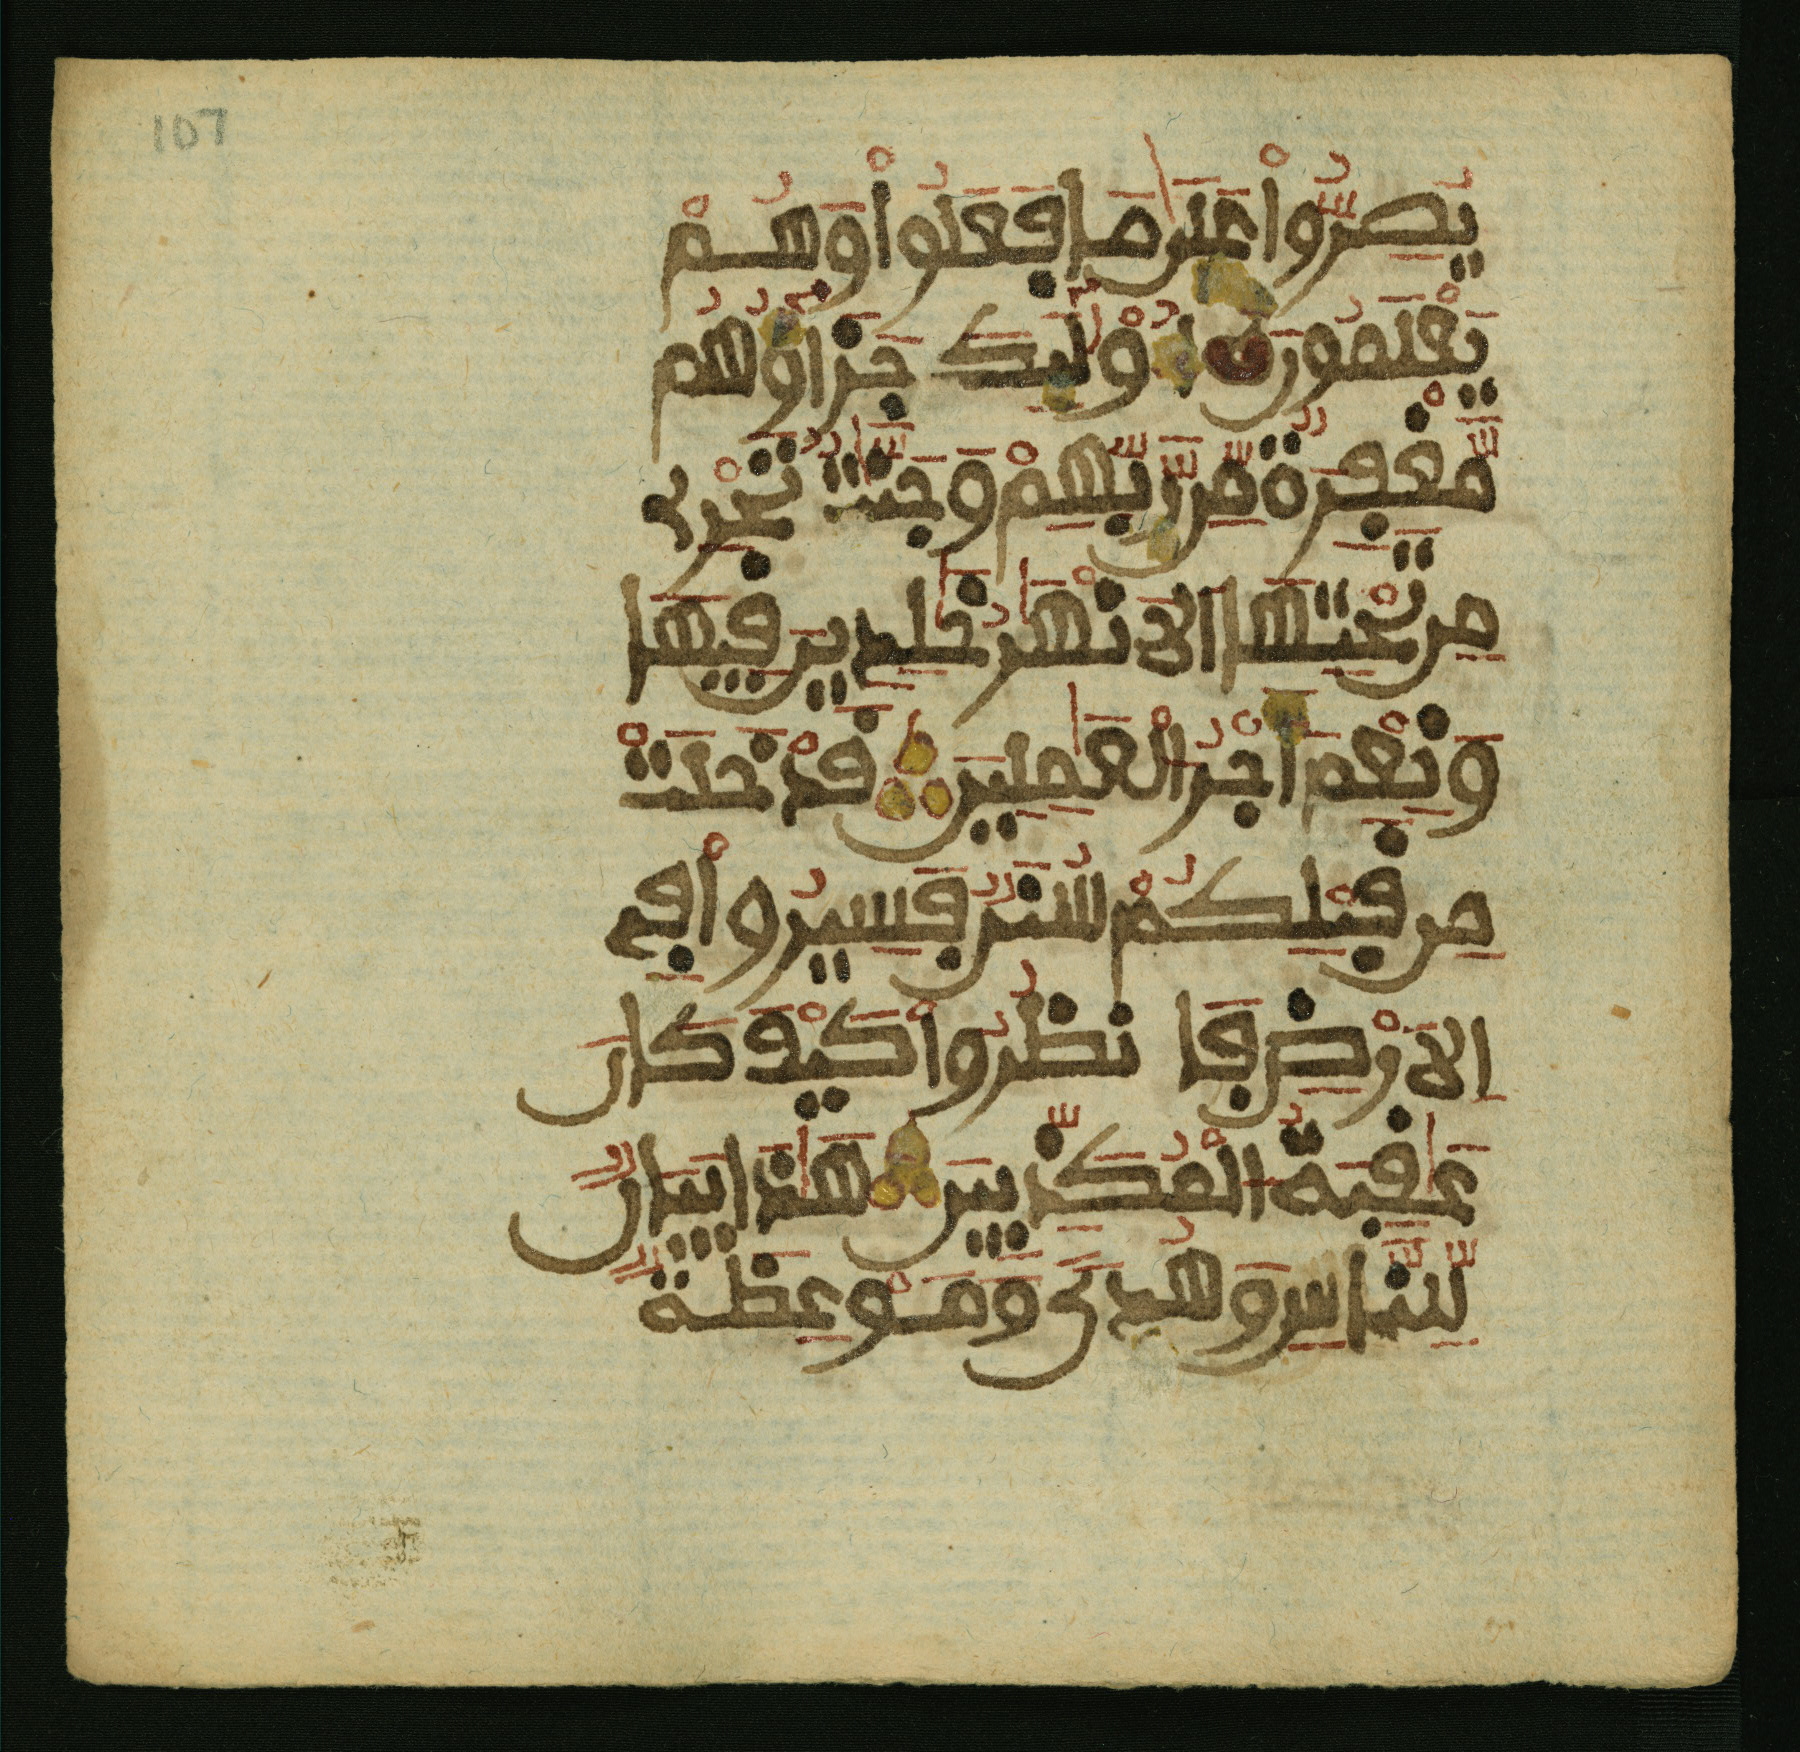 107
يُصِرُّواْ عَلَىٰ مَا فَعَلُواْ وَهُمْ
يَعْلَمُونَ أُوْلَٰٓئِكَ جَزَآؤُهُم
مَّغْفِرَةٌ مِّن رَّبِّهِمْ وَجَنَّٰتٌ تَجْرِى
مِن تَحْتِهَا الَانْهَٰرُ خَٰلِدِينَ فِيهَا
وَنِعْمَ أَجْرُ الْعَٰمِلِينَ قَدْ خَلَتْ
مِن قَبْلِكُمْ سُنَنٌ فَسِيرُواْ فِى
الَارْضِ فَانظُرُواْ كَيْفَ كَانَ
عَٰقِبَةُ الْمُكَذِّبِينَ هَٰذَا بَيَانٌ
لِّلنَّاسِ وَهُدًى وَمَوْعِظَةٌ